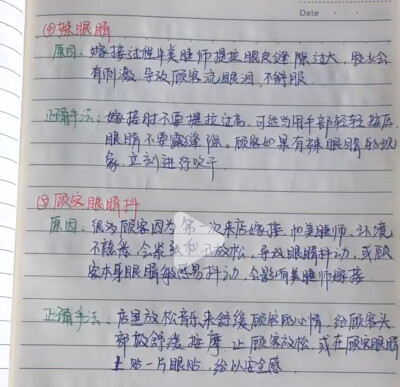 Date
④辣眼睛
原因：嫁接过程中美睫师提拉眼皮缝隙过大，胶水会
有刺激，导致顾客流眼泪，不舒服。
正确手法：嫁接时不要提拉过高，可适当用手部轻轻按压，
眼睛不要露缝隙。顾客如果有辣眼睛的现
象，立刻进行吹干
⑤顾客眼睛抖
原因：很多顾客因为第一次来店嫁接，和美睫师、环境
不熟悉，会紧张和不放松，导致眼睛抖动，或顾
客本身眼睛敏感易抖动，会影响美睫师嫁接
正确手法：店里放松音乐来舒缓顾客的心情，给顾客头
部做舒缓按摩让顾客放松，或在顾客眼睛
上贴一片眼贴，给以安全感